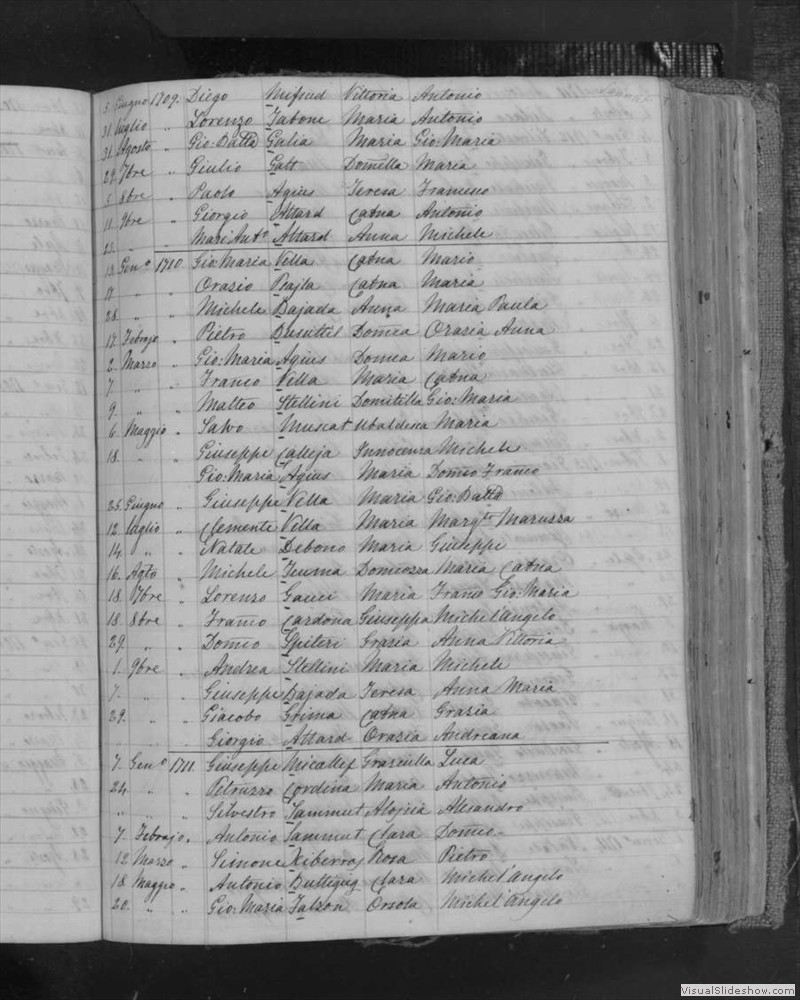 5. Giugno 1709. Diego Mifsud Vittoria Antonio
31. Luglio " Lorenzo Tabone Maria Antonio
31. Agosto " Gio: Batta Galia Maria Gio: Maria
29. 7bre " Giulio Gatt Domilla Maria
5. 8bre " Paolo Agius Teresa Franceso
11. 9bre " Giorgio Attard Catna Antonio
23. " " Mari Anto Attard Anna Michele
13. Geno 1710. Gio: Maria Vella Catna Mario
17. " " Orazio Psajla Catna Maria
28. " " Michele Bajada Anna Maria Paula
17. Febrajo " Pietro Busuttil Domca Orazia Anna
2. Marzo " Gio: Maria Agius Domca Mario
7. " " Franco Vella Maria Catna
9. " " Matteo Stellini Domitilla Gio: Maria
6. Maggio " Salvo Muscat Ubaldesca Maria
18. " " Giuseppe Calleja Innocenza Michele
Gio: Maria Agius Maria Domco Franco
25. Giugno " Giuseppe Vella Maria Gio: Batta
12. Luglio " Clemente Vella Maria Margta Maruzza
14. " " Natale Debono Maria Giuseppe
16. Agto " Michele Teuma Domcozza Maria Catna
18. 7bre " Lorenzo Gauci Maria Franco Gio: Maria
18. 8bre " Franco Cardona Giuseppa Michel'angelo
29. " " Domco Spiteri Grazia Anna Vittoria
1. 9bre " Andrea Stellini Maria Michele
7. " " Giuseppe Bajada Teresa Anna Maria
29. " " Giacobo Grima Catna Grazia
" " Giorgio Attard Orazia Andreana
7. Geno 1711. Giuseppe Micallef Graziulla Luca
24. " " Petruzzo Cordina Maria Antonio
" " " Silvestro Sammut Alojsia Alesandro
7. Febrajo " Antonio Sammut Clara Domco
12. Marzo " Simone Xiberras Rosa Pietro
18. Maggio " Antonio Buttigieg Clara Michel'angelo
20. " " Gio: Maria Falzon Orsola Michel'angelo
VisualSlideshow.com